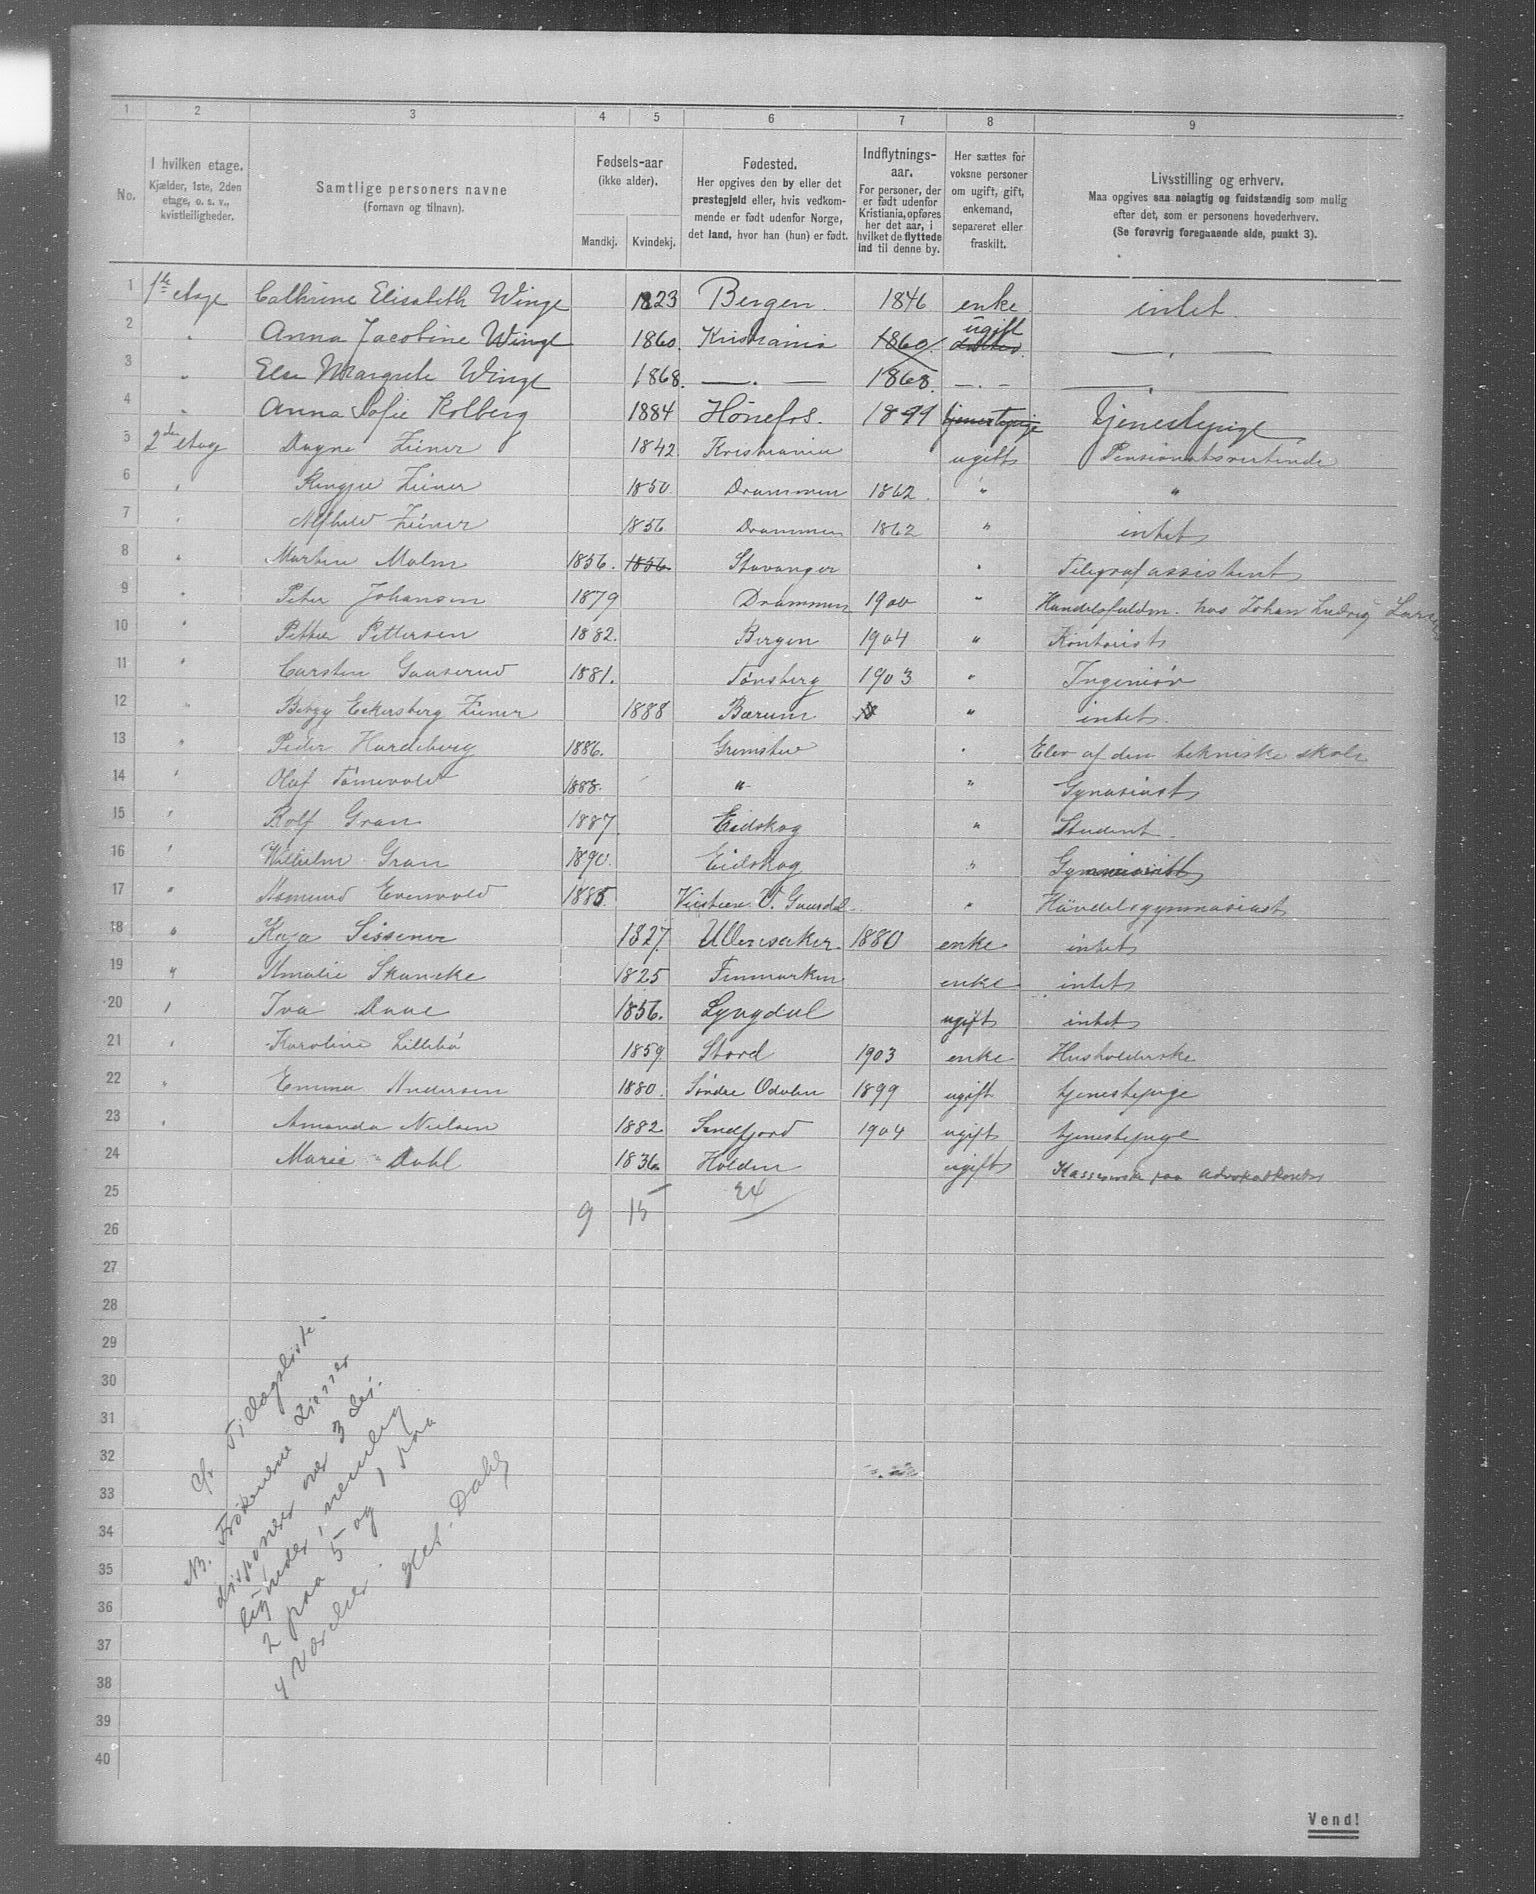 1 2 3 4 5 6 7 8 9
No. I hvilken etage. Kjælder, 1ste, 2den etage, o. s. v., kvistleiligheder. Samtlige personers navne (Fornavn og tilnavn). Fødsels-aar (ikke alder). Mandkj. Kvindekj. Fødested. Her opgives den by eller det prestegjeld eller, hvis vedkommende er født udenfor Norge, det land, hvor han (hun) er født. Indflytnings-aar. For personer, der er født udenfor Kristiania, opføres her det aar, i hvilket de flyttede ind til denne by. Her sættes for voksne personer om ugift, gift, enkemand, separeret eller fraskilt. Livsstilling og erhverv. Maa opgives saa nøiagtig og fuldstændig som mulig efter det, som er personens hovederhverv. (Se forøvrig foregaaende side, punkt 3).
1 1ste etage Cathrine Elisabeth Winge 1823 Bergen. 1846 enke intet.
2 " Anna Jacobine Winge 1860. Kristiania 1860. ugift —"—
3 " Else Margrete Winge 1868. —"— 1868. —"— —"—
4 " Anna Sofie Kolberg 1884 Hønefos. 1899 tjenestepige tjenestepige
5 2den etage Dagny Ziener 1842 Kristiania ugift Pensionatsvertinde
6 " Ziener 1850 Drammen 1862. " "
7 " Alfhild Ziener 1856 Drammen 1862 " intet
8 " Martin Malm 1856. 1856 Stavanger " Telegrafassistent
9 " Peter Johansen 1879 Drammen 1900 " Handelsfuldm. hos Johan Ludvig
10 " Petter Pettersen 1882. Bergen 1904 " Kontorist
11 " Carsten Gauserud 1881. Tønsberg 1903 " Ingeniør
12 " Betzy Eckersberg Ziener 1888 Bærum " intet.
13 " Peder Hardeberg 1886. Grimstad " Elev af den tekniske skole
14 " Olaf Tønnevold 1888. " " Gymnasiast
15 " Rolf Gran 1887 Eidskog " Student.
16 " Wilhelm Gran 1890. Eidskog " Gymnasiast
17 " Aamund Evenvold 1885 V. Gausdal " Handelsgymnasiast
18 " Kaja Sissener 1827. Ullensaker 1880 enke intet
19 " Amalie Skancke 1825 Finmarken enke intet
20 " Iva Daae 1856. Lyngdal ugift intet
21 " Karoline Lillebø 1859 Stord 1903 enke Husholderske
22 " Emma Andersen 1880. Søndre Odalen 1899 ugift tjenestepige
23 " Amanda Nielsen 1882 Sandfjord 1904 ugift tjenestepige
24 Marie Dahl 1836. Holden ugift Kassererske paa advokatkontor
25 9 15 24
26
27
28
29
30
31
32
33
34
35
36
37
38
39
40
cfr. Tillægsliste.
NB. Frøknerne Ziener
disponerer over 3 lei-
ligheder, nemlig
2 paa 5 og 1 paa
4 Værelser. Dahl
Vend!